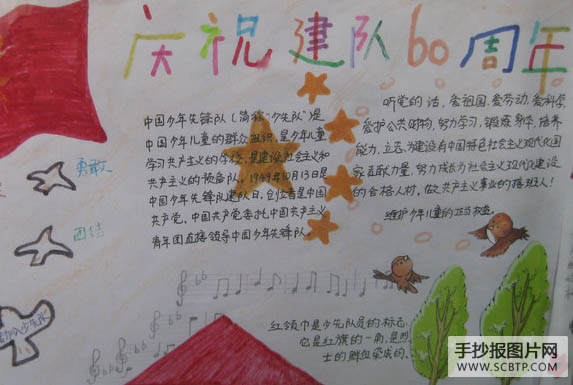 庆祝建队60周年
中国少年先锋队（简称“少先队”）是
中国少年儿童的群众组织，是少年儿童
学习共产主义的学校，是建设社会主义和
共产主义的预备队。1949年10月13日是
中国少年先锋队建队日，创立者是中国
共产党，中国共产党委托中国共产主义
青年团直接领导中国少年先锋队。
听党的话，爱祖国、爱劳动、爱科学、
爱护公共财物，努力学习，锻炼身体，培养
能力，立志为建设有中国特色社会主义现代化国
家贡献力量，努力成长为社会主义现代化建设
的合格人材，做共产主义事业的接班人！
维护少年儿童的正当权益。
勇敢
团结
红领巾是少先队员的标志，
它是红旗的一角，是烈
士的鲜血染成的。
手抄报图片网
WWW.SCBTP.COM